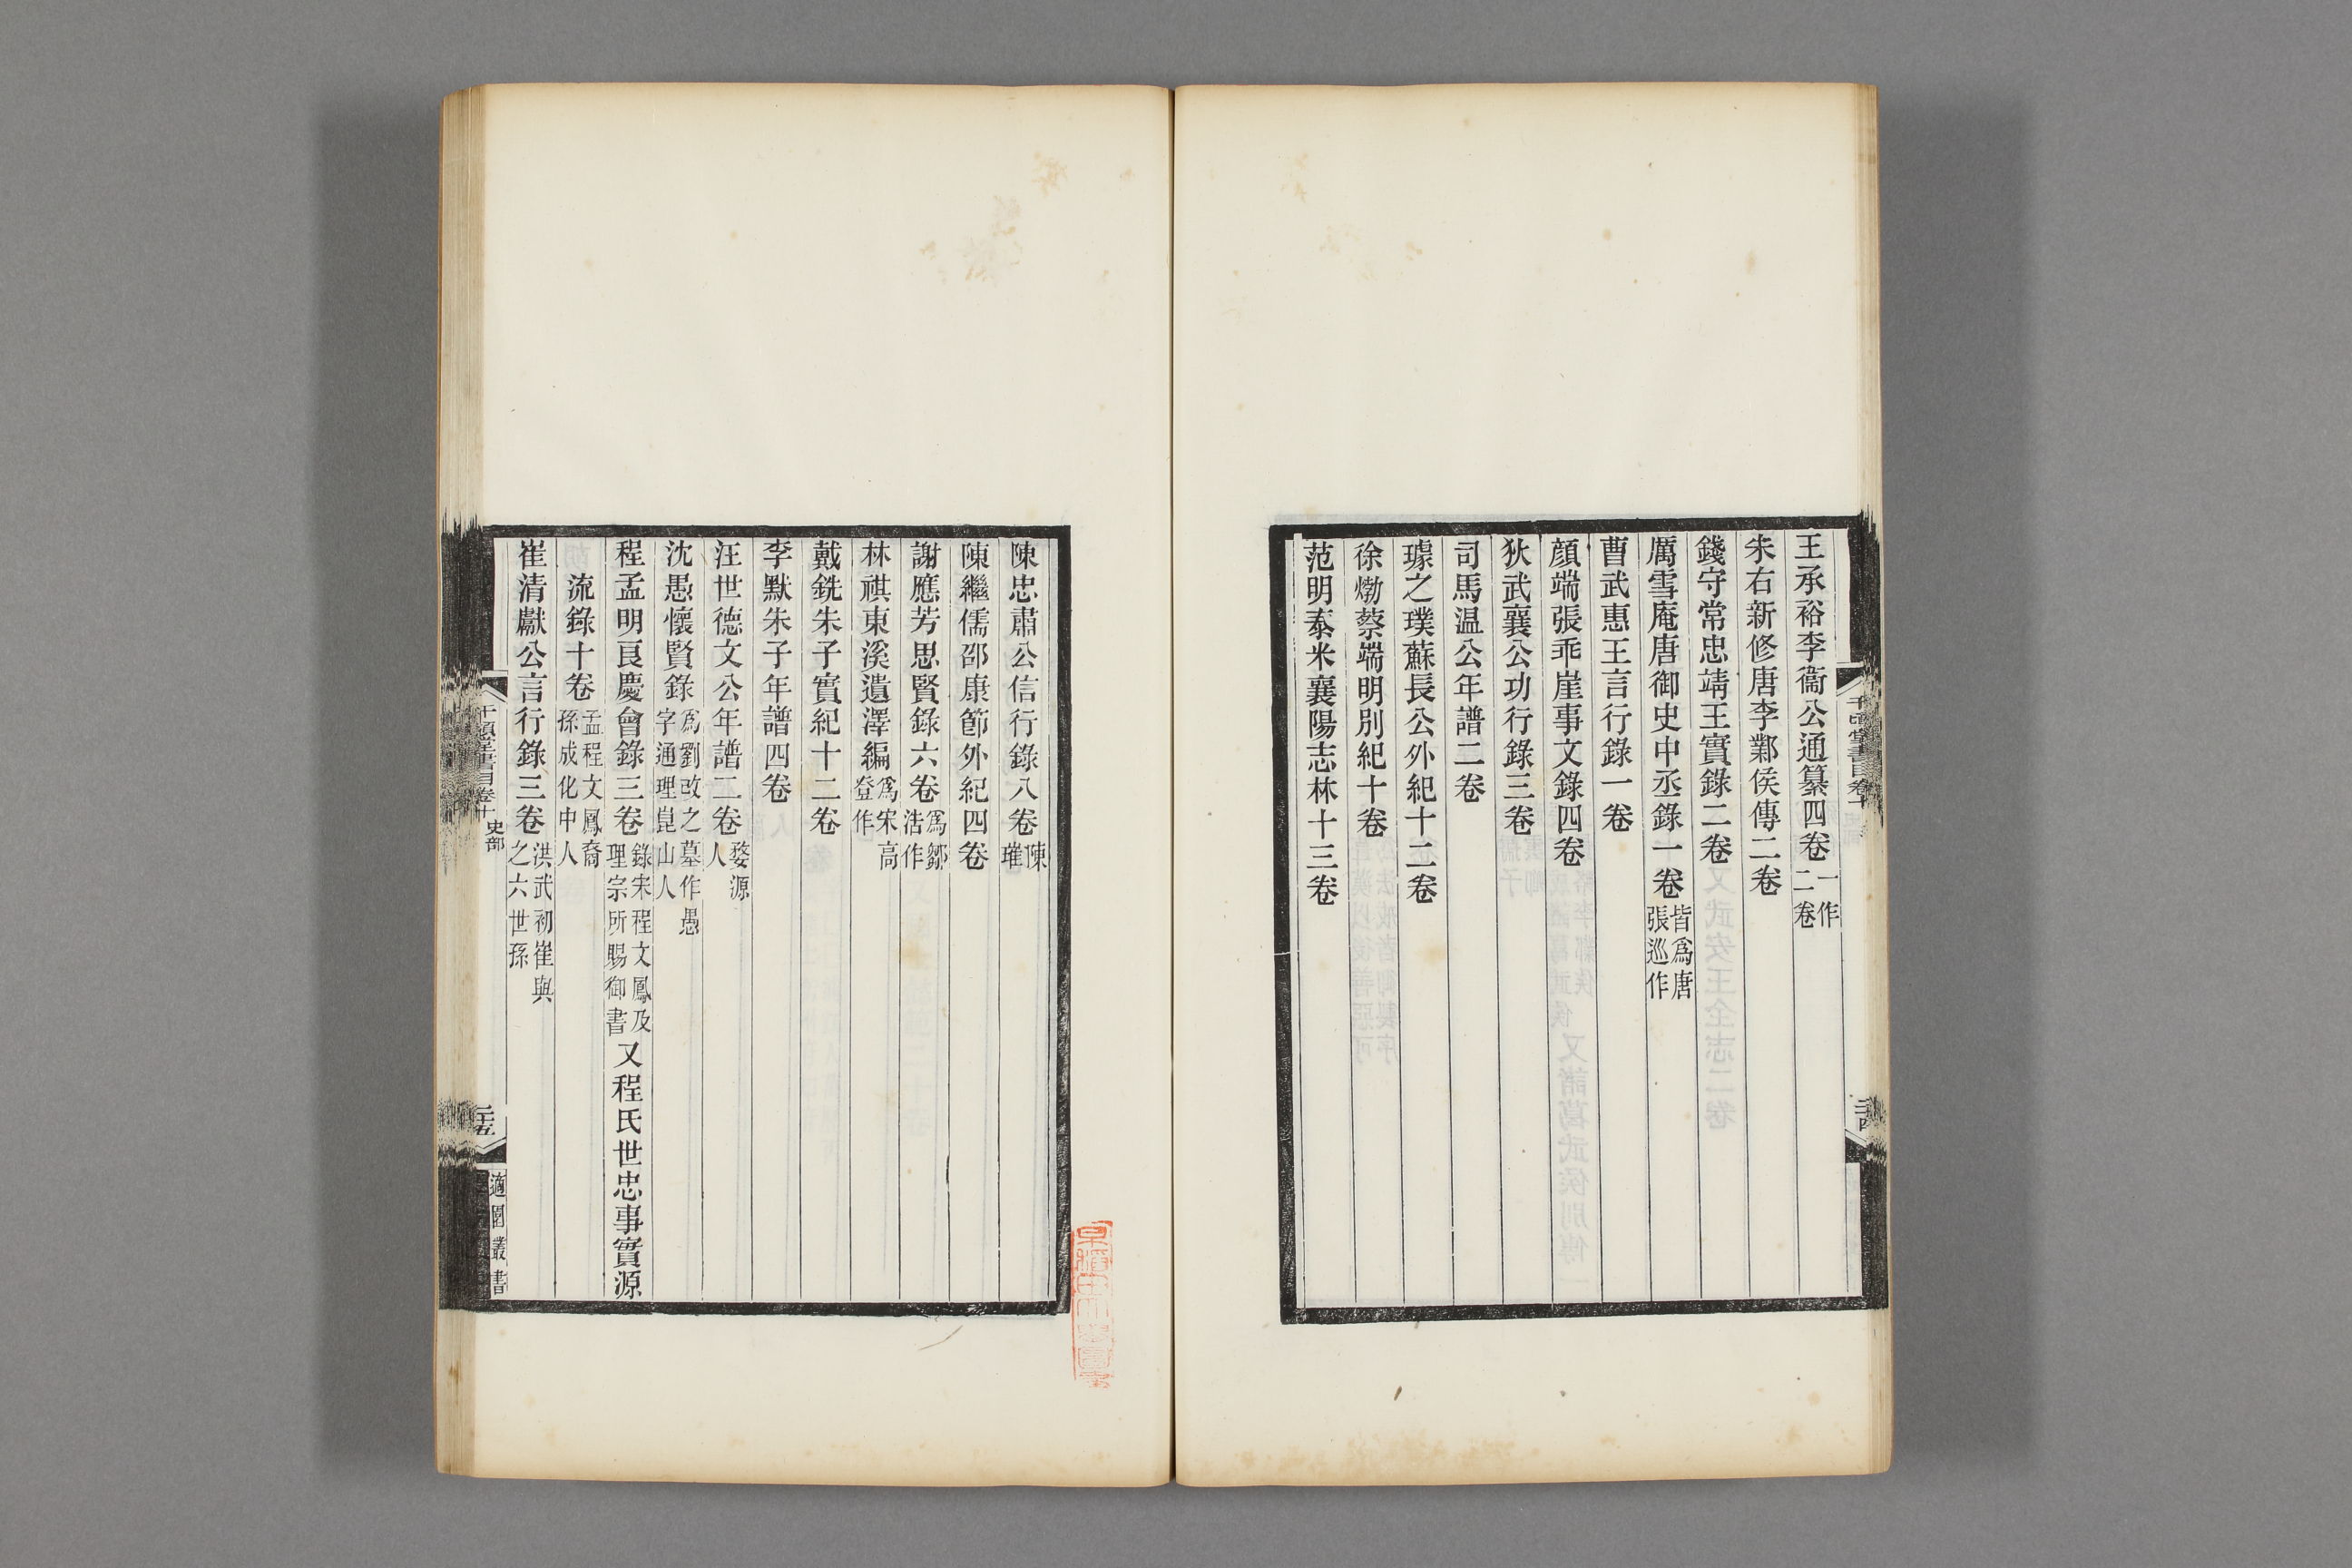 王承裕李衞公通纂四卷一作二卷
朱右新修唐李鄴侯傳二卷
錢守常忠靖王實錄二卷
厲雪庵唐御史中丞錄一卷皆爲唐張巡作
曹武惠王言行錄一卷
顏端張乖崖事文錄四卷
狄武襄公功行錄三卷
司馬温公年譜二卷
璩之璞蘇長公外紀十二卷
徐𤊹蔡端明別紀十卷
范明泰米襄陽志林十三卷
千頃堂書目卷十
二十四
陳忠肅公言行錄八卷陳璀
陳繼儒邵康節外紀四卷
謝應芳思賢錄六卷爲鄒浩作
林祺東溪遺澤編爲宋高登作
戴銑朱子實紀十二卷
李默朱子年譜四卷
汪世德文公年譜二卷婺源人
沈愚懷賢錄爲劉改之墓作愚字通理崑山人
程孟明良慶會錄三卷錄宋程文鳳及理宗所賜御書又程氏世忠事實源
流錄十卷孟程文鳳裔孫成化中人
崔清獻公言行錄三卷洪武初崔與之六世孫
千頃堂書目卷十 史部
二十五
適園叢書